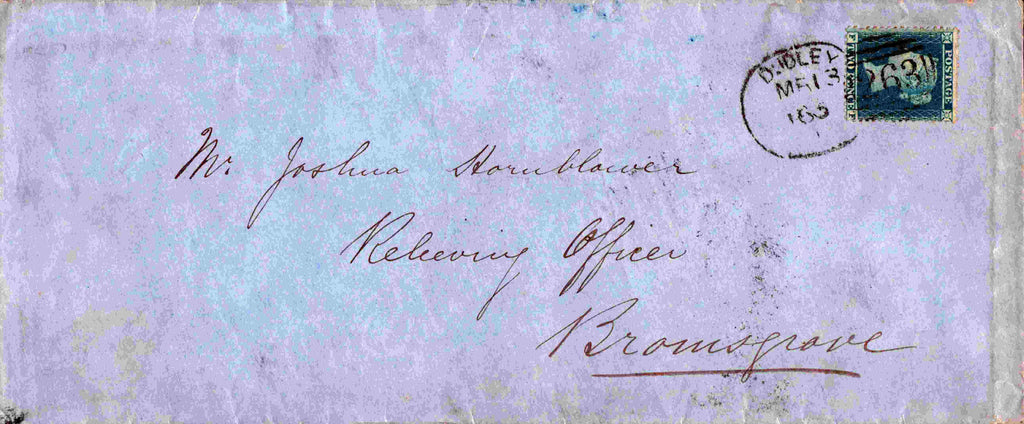 DUDLEY
POSTAGE
TWO PENCE
Mr. Joshua Hornblower
Relieving Officer
Bromsgrove